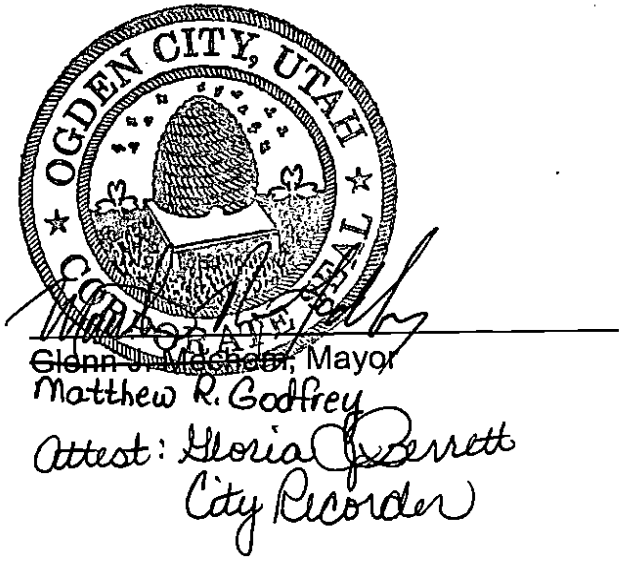 OGDEN CITY, UTAH
CORPORATE SEAL
Glenn J. Mecham, Mayor
Matthew R. Godfrey
Attest: Gloria J. Berrett
City Recorder